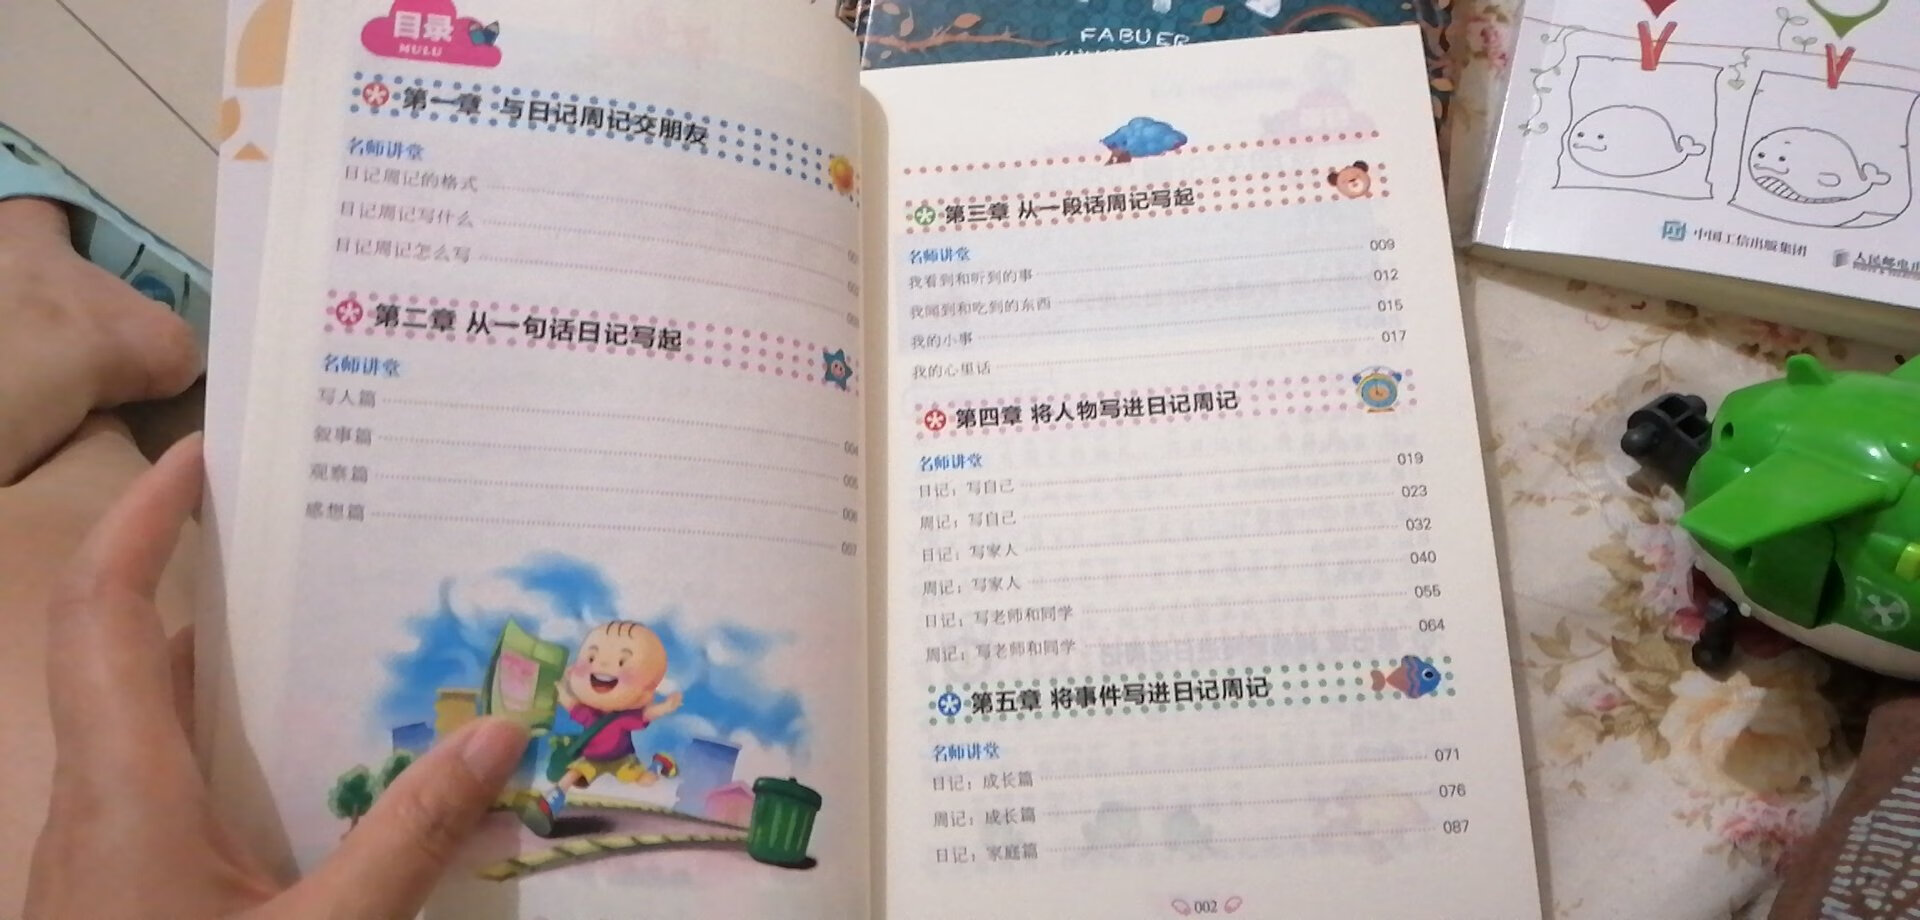 目录
MULU
第一章 与日记周记交朋友
名师讲堂
日记周记的格式 001
日记周记写什么 002
日记周记怎么写 003
第二章 从一句话日记写起
名师讲堂
写人篇 004
叙事篇 005
观察篇 006
感想篇 007
FABUER
第三章 从一段话周记写起
名师讲堂
我看到和听到的事 009
我闻到和吃到的东西 012
我的小事 015
我的心里话 017
第四章 将人物写进日记周记
名师讲堂
日记：写自己 019
周记：写自己 023
日记：写家人 032
周记：写家人 040
日记：写老师和同学 055
周记：写老师和同学 064
第五章 将事件写进日记周记
名师讲堂
日记：成长篇 071
周记：成长篇 076
日记：家庭篇 087
002
中国工信出版集团
人民邮电出